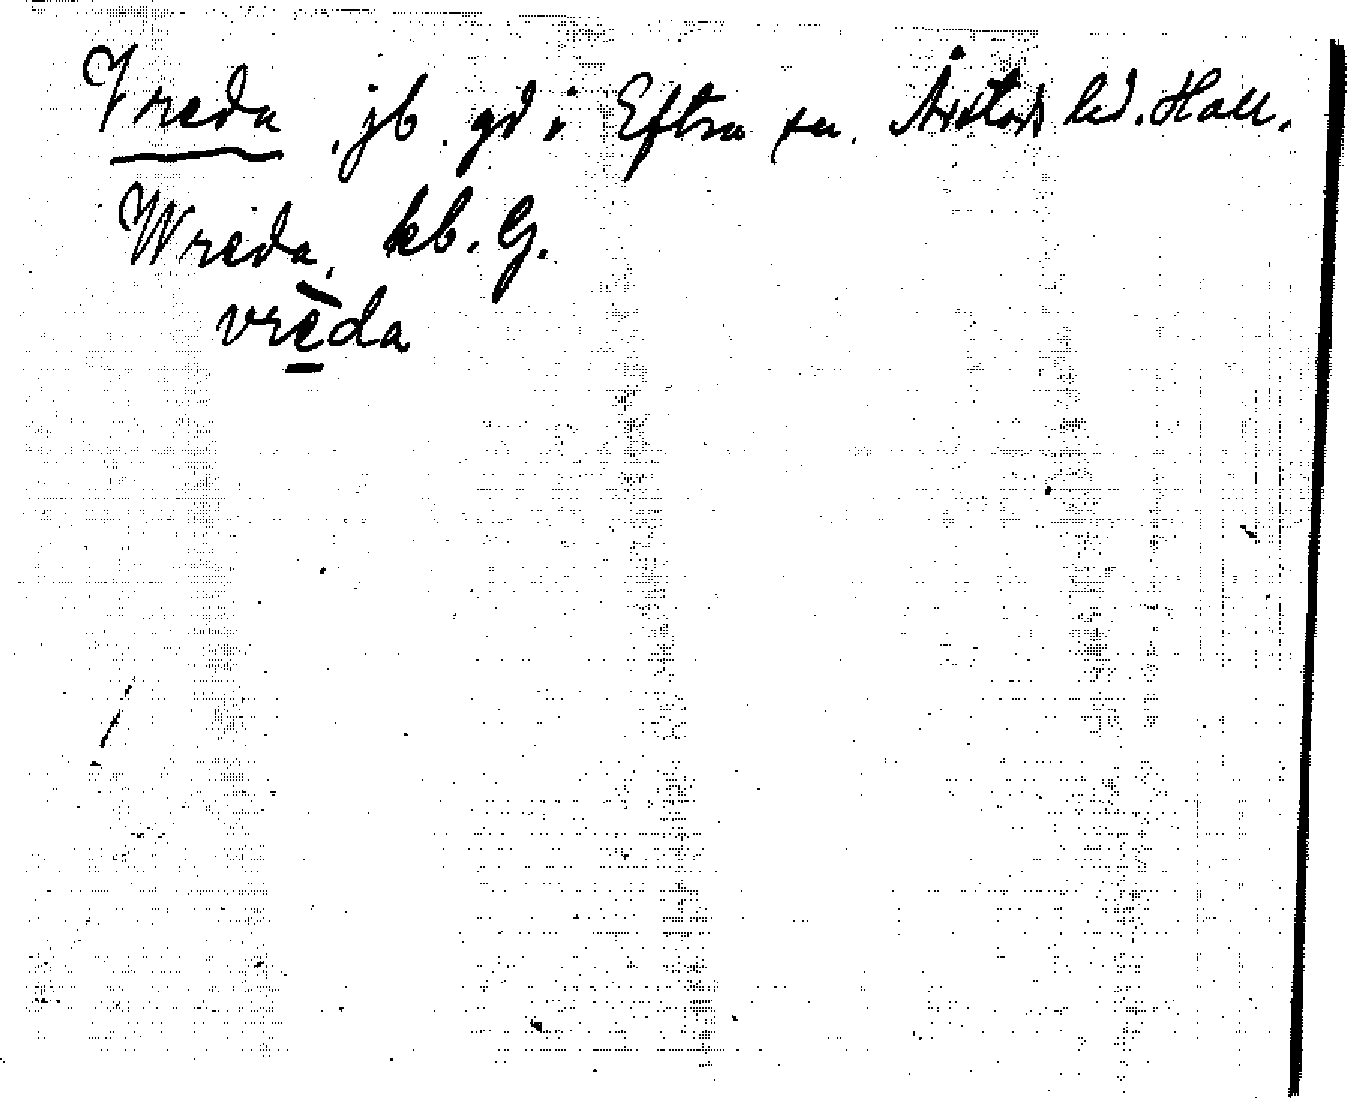 Vreda, jb. gd i Eftra sn. Årstads hd. Hall.
Wreda, kb. G.
vrèda